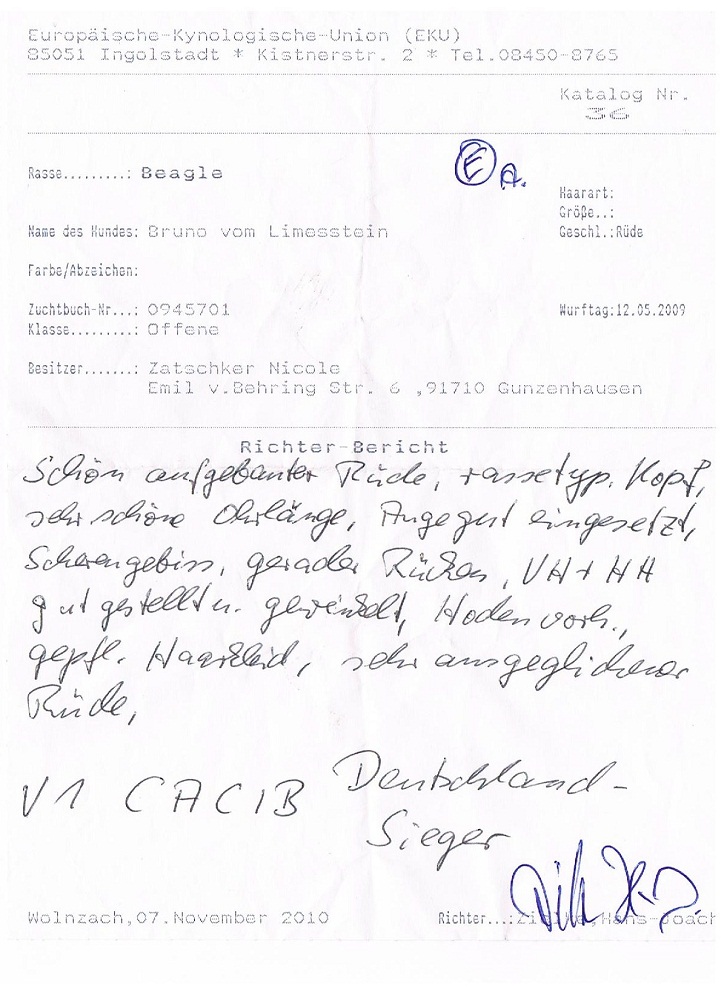 Europäische-Kynologische-Union (EKU)
85051 Ingolstadt * Kistnerstr. 2 * Tel.08450-8765
Katalog Nr.
36
E A.
Rasse.........: Beagle
Haarart:
Größe..:
Name des Hundes: Bruno vom Limesstein
Geschl.:Rüde
Farbe/Abzeichen:
Zuchtbuch-Nr...: 0945701
Wurftag:12.05.2009
Klasse.........: Offene
Besitzer.......: Zatschker Nicole
Emil v.Behring Str. 6 ,91710 Gunzenhausen
Richter-Bericht
Schön aufgebauter Rüde, rassetyp. Kopf,
sehr schöne Ohrlänge, Auge gut eingesetzt,
Scherengebiss, gerader Rücken, VH + HH
gut gestellt u. gewinkelt, Hoden vorh.,
gepfl. Haarkleid, sehr ausgeglichener
Rüde,
V1 CACIB Deutschland-
Sieger
Wolnzach,07.November 2010
Richter...:Zielke,Hans-Joach